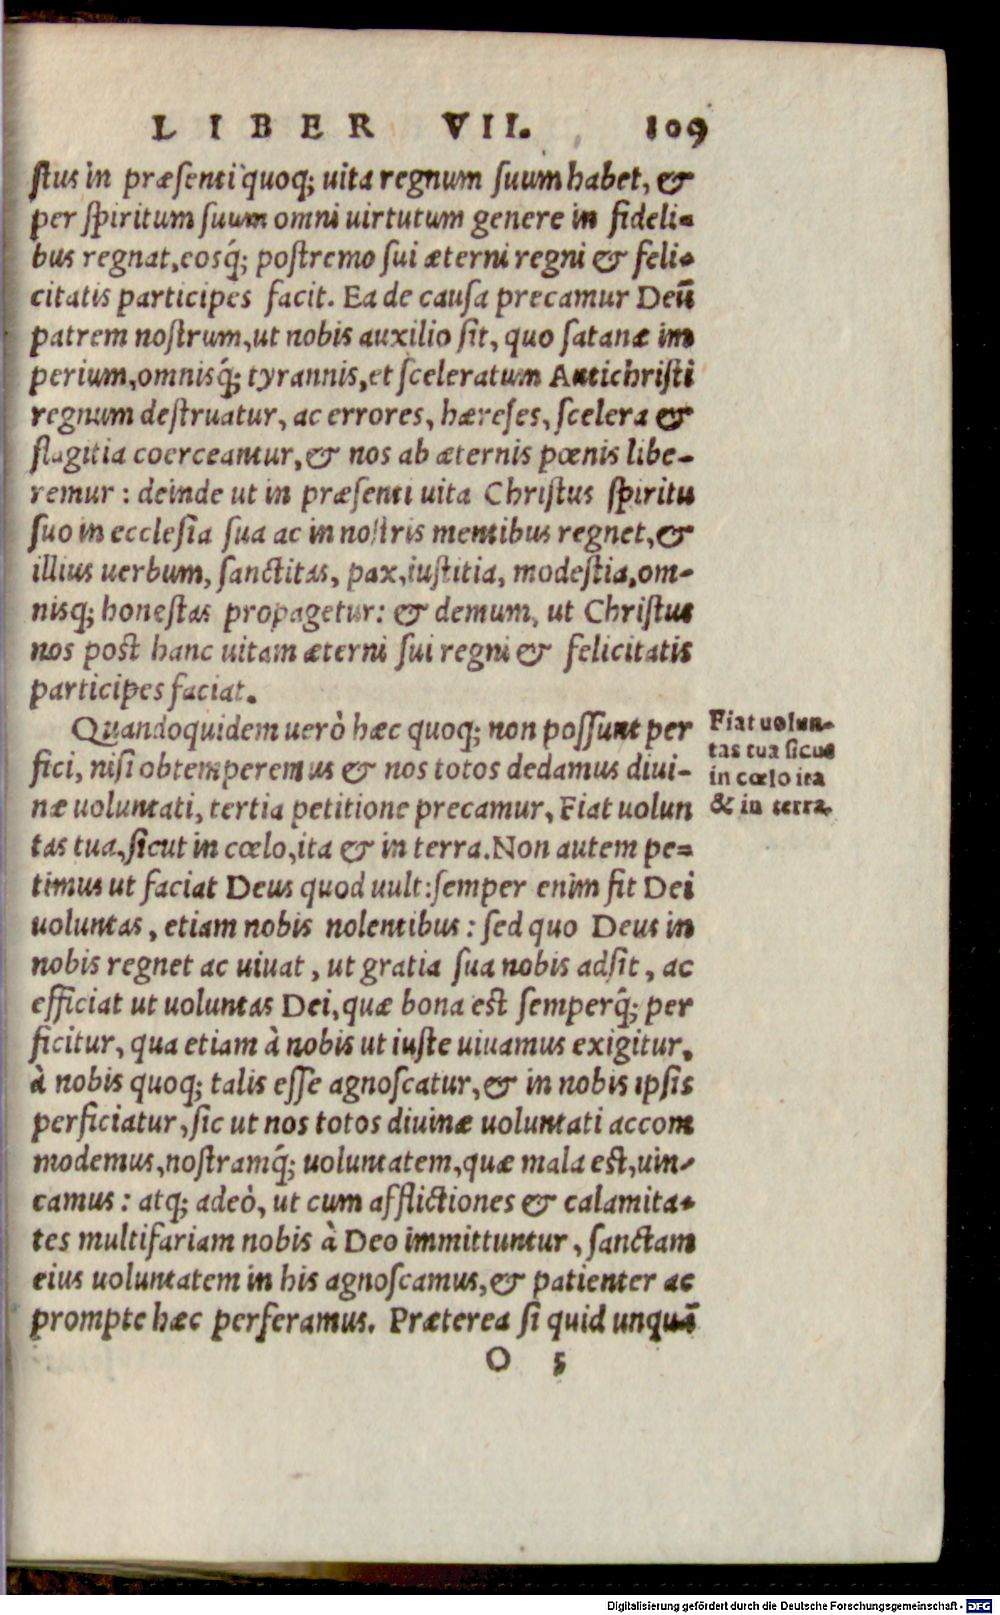 LIBER VII. 109
ſtus in præſenti quoq; uita regnum ſuum habet, &
per ſpiritum ſuum omni uirtutum genere in fideli-
bus regnat, eosq́; poſtremo ſui æterni regni & feli-
citatis participes facit. Ea de cauſa precamur Deũ
patrem noſtrum, ut nobis auxilio ſit, quo ſatanæ im
perium, omnisq́; tyrannis, et ſceleratum Antichriſti
regnum deſtruatur, ac errores, hæreſes, ſcelera &
flagitia coerceantur, & nos ab æternis pœnis libe-
remur: deinde ut in præſenti uita Chriſtus ſpiritu
ſuo in eccleſia ſua ac in noſtris mentibus regnet, &
illius uerbum, ſanctitas, pax, iuſtitia, modeſtia, om-
nisq; honeſtas propagetur: & demum, ut Chriſtus
nos poſt hanc uitam æterni ſui regni & felicitatis
participes faciat.
Quandoquidem uerò hæc quoq; non poſſunt per
fici, niſi obtemperemus & nos totos dedamus diui-
næ uoluntati, tertia petitione precamur, Fiat uolun
tas tua, ſicut in cœlo, ita & in terra. Non autem pe-
timus ut faciat Deus quod uult: ſemper enim fit Dei
uoluntas, etiam nobis nolentibus: ſed quo Deus in
nobis regnet ac uiuat, ut gratia ſua nobis adſit, ac
efficiat ut uoluntas Dei, quæ bona eſt ſemperq̃; per
ficitur, qua etiam à nobis ut iuſte uiuamus exigitur,
à nobis quoq; talis eſſe agnoſcatur, & in nobis ipſis
perficiatur, ſic ut nos totos diuinæ uoluntati accom
modemus, noſtramq́; uoluntatem, quæ mala eſt, uin-
camus: atq; adeò, ut cum afflictiones & calamita-
tes multifariam nobis à Deo immittuntur, ſanctam
eius uoluntatem in his agnoſcamus, & patienter ac
prompte hæc perferamus. Præterea ſi quid unquã
O 5
Fiat uolun-
tas tua ſicut
in cœlo ita
& in terra.
Digitalisierung gefördert durch die Deutsche Forschungsgemeinschaft - DFG